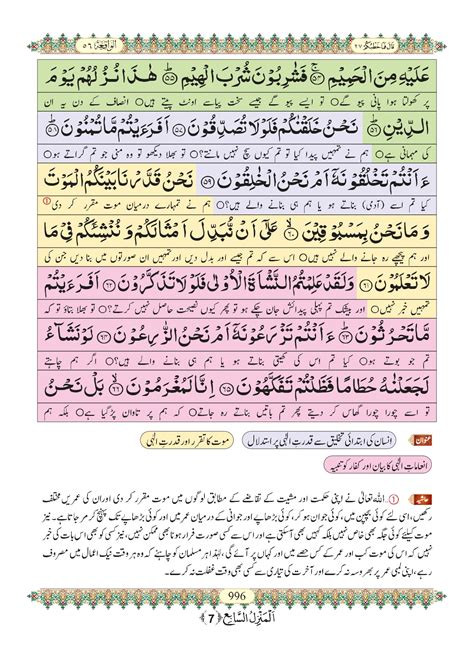 قَالَ فَمَا خَطْبُكُمْ ٢٧
اَلْوَاقِعَة ٥٦
عَلَيْهِ مِنَ الْحَمِيْمِ ﴿٥٤﴾ فَشٰرِبُوْنَ شُرْبَ الْهِيْمِ ﴿٥٥﴾ هٰذَا نُزُلُهُمْ يَوْمَ
پر کھولتا ہوا پانی پیو گے ○ تو ایسے پیو گے جیسے سخت پیاسے اونٹ پیتے ہیں ○ انصاف کے دن یہ ان
الدِّيْنِ ﴿٥٦﴾ نَحْنُ خَلَقْنٰكُمْ فَلَوْلَا تُصَدِّقُوْنَ ﴿٥٧﴾ اَفَرَءَيْتُمْ مَّا تُمْنُوْنَ ﴿٥٨﴾
کی مہمانی ہے ○ ہم نے تمہیں پیدا کیا تو تم کیوں سچ نہیں مانتے؟ ○ تو بھلا دیکھو تو وہ منی جو تم گراتے ہو ○
ءَاَنْتُمْ تَخْلُقُوْنَهٗۤ اَمْ نَحْنُ الْخٰلِقُوْنَ ﴿٥٩﴾ نَحْنُ قَدَّرْنَا بَيْنَكُمُ الْمَوْتَ
کیا تم اسے (آدمی) بناتے ہو یا ہم ہی بنانے والے ہیں؟ ○ ہم نے تمہارے درمیان موت مقرر کر دی ①
وَمَا نَحْنُ بِمَسْبُوْقِيْنَ ﴿٦٠﴾ عَلٰۤى اَنْ نُّبَدِّلَ اَمْثَالَكُمْ وَنُنْشِئَكُمْ فِيْ مَا
اور ہم پیچھے رہ جانے والے نہیں ہیں ○ اس سے کہ تم جیسے اور بدل دیں اور تمہیں ان صورتوں میں بنا دیں جن کی
لَا تَعْلَمُوْنَ ﴿٦١﴾ وَلَقَدْ عَلِمْتُمُ النَّشْاَةَ الْاُوْلٰى فَلَوْلَا تَذَكَّرُوْنَ ﴿٦٢﴾ اَفَرَءَيْتُمْ
تمہیں خبر نہیں ○ اور بیشک تم پہلی پیدائش جان چکے ہو تو پھر کیوں نصیحت حاصل نہیں کرتے؟ ○ تو بھلا بتاؤ تو کہ
مَّا تَحْرُثُوْنَ ﴿٦٣﴾ ءَاَنْتُمْ تَزْرَعُوْنَهٗۤ اَمْ نَحْنُ الزّٰرِعُوْنَ ﴿٦٤﴾ لَوْ نَشَآءُ
تم جو بوتے ہو ○ کیا تم اس کی کھیتی بناتے ہو یا ہم ہی بنانے والے ہیں؟ ○ اگر ہم چاہتے
لَجَعَلْنٰهُ حُطَامًا فَظَلْتُمْ تَفَكَّهُوْنَ ﴿٦٥﴾ اِنَّا لَمُغْرَمُوْنَ ﴿٦٦﴾ بَلْ نَحْنُ
تو اسے چورا چورا گھاس کر دیتے پھر تم باتیں بناتے رہ جاتے ○ کہ ہم پر تاوان پڑ گیا ہے ○ بلکہ ہم
عنوان انسان کی ابتدائی تخلیق سے قدرتِ الٰہی پر استدلال موت کا تقرر اور قدرتِ الٰہی
انعاماتِ الٰہی کا بیان اور کفار کو تنبیہ
حاشیہ ① اللہ تعالیٰ نے اپنی حکمت اور مشیت کے تقاضے کے مطابق لوگوں میں موت مقرر کر دی اور ان کی عمریں مختلف
رکھیں، اسی لئے کوئی بچپن میں، کوئی جوان ہو کر، کوئی بڑھاپے اور جوانی کے درمیان عمر میں اور کوئی بڑھاپے تک پہنچ کر مر جاتا ہے۔ نیز
موت کیلئے کوئی جگہ بھی خاص نہیں بلکہ کہیں بھی آسکتی ہے اور اس سے کسی صورت فرار ہونا بھی ممکن نہیں، نیز کسی کو بھی اس بات کی خبر
نہیں ہے کہ اس کی موت کب اور عمر کے کس حصے میں اور کہاں پر آئے گی، لہٰذا ہر مسلمان کو چاہئے کہ وہ ہر وقت نیک اعمال میں مصروف
رہے، اپنی لمبی عمر پر بھروسہ نہ کرے اور آخرت کی تیاری سے کسی بھی وقت غفلت نہ کرے۔
996
اَلْمَنْزِلُ السَّابِع ﴿7﴾